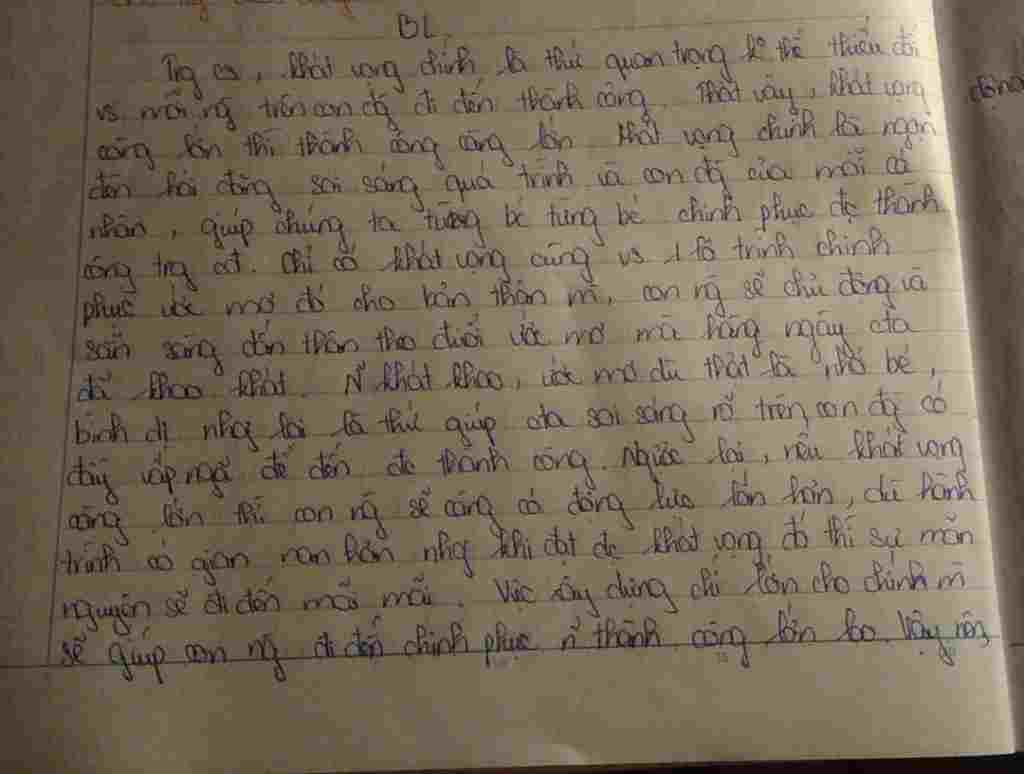 BL
Trg cs, khát vọng chính là thứ quan trọng k thể thiếu đối
vs mỗi ng trên con đg đi đến thành công. Thật vậy, khát vọng
càng lớn thì thành công càng lớn. Khát vọng chính là ngọn
đèn hải đăng soi sáng quá trình và con đg của mỗi cá
nhân, giúp chúng ta từng bc từng bc chinh phục đc thành
công trg Chỉ có khát vọng cùng vs 1 lộ trình chinh
phục ước mơ đó cho bản thân mì, con ng sẽ chủ động và
sẵn sàng dấn thân theo đuổi ước mơ mà hàng ngày cta
đã khao khát. N~ khát khao, ước mơ dù thật là nhỏ bé,
bình dị nhg lại là thứ giúp cta soi sáng rõ trên con đg có
đầy vấp ngã để đến đc thành công. Ngược lại, nếu khát vọng
càng lớn thì con ng sẽ càng có động lực lớn hơn, dù hành
trình có gian nan hơn nhg khi đạt đc khát vọng đó thì sự mãn
nguyện sẽ đi đến mãi mãi. Việc xây dựng chí lớn cho chính mì
sẽ giúp con ng đi đến chinh phục n~ thành công lớn lao. Vậy nên,
động